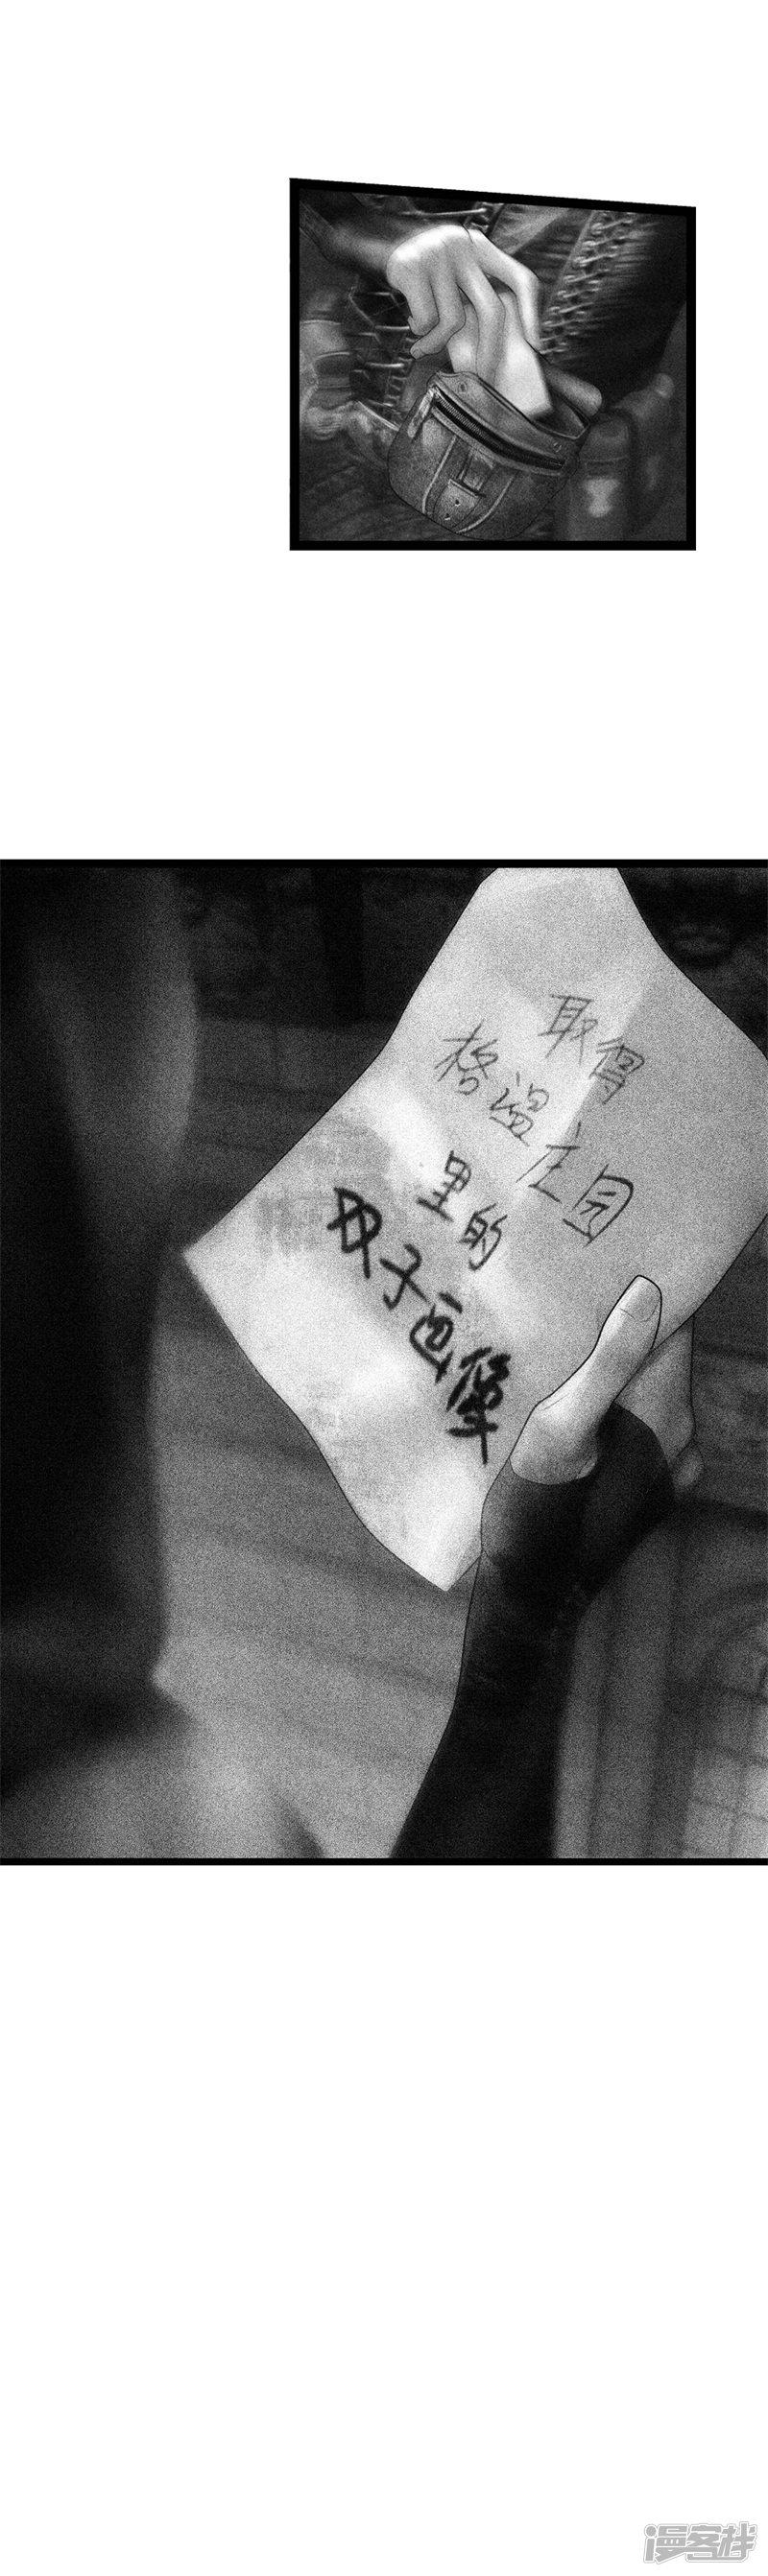 取得
格温庄园
里的
母子画像
漫客栈